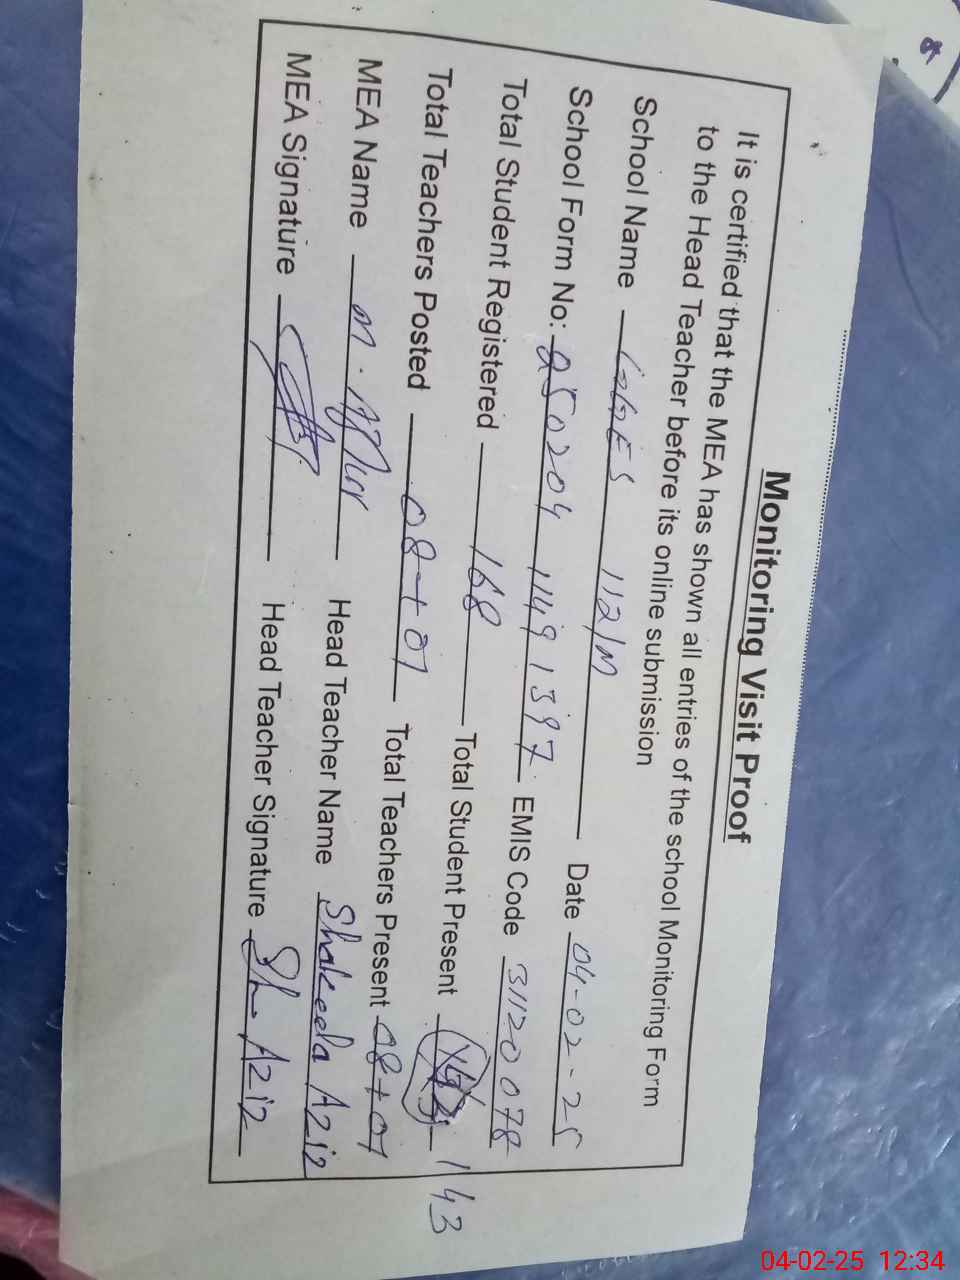 Monitoring Visit Proof
It is certified that the MEA has shown all entries of the school Monitoring Form
to the Head Teacher before its online submission
School Name GGES 112/M Date 04-02-25
School Form No: 250204 1149 1397 EMIS Code 31120078
Total Student Registered 168 Total Student Present 143
Total Teachers Posted 08+01 Total Teachers Present 08+01
MEA Name M. Head Teacher Name Shakeela Aziz
MEA Signature Head Teacher Signature Sh Aziz
04-02-25 12:34